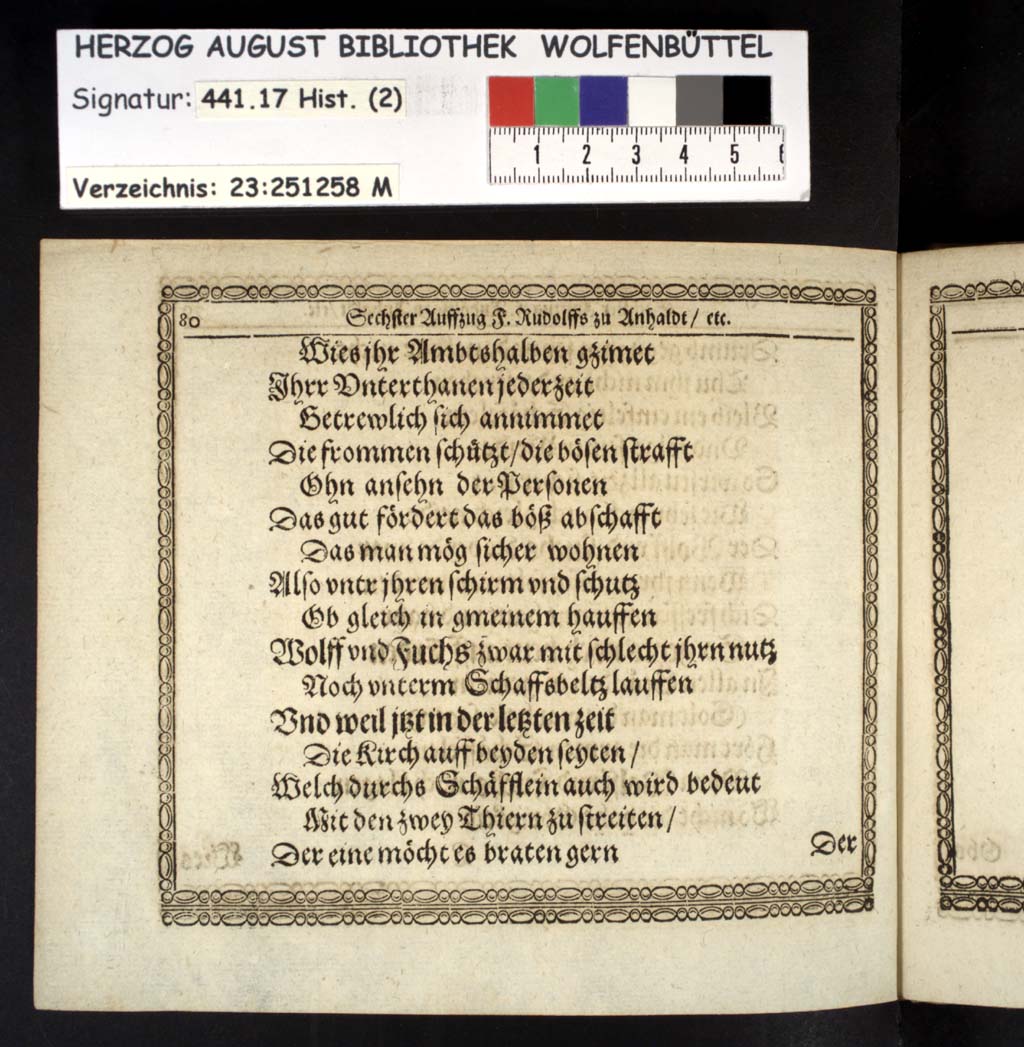 HERZOG AUGUST BIBLIOTHEK WOLFENBÜTTEL
Signatur: 441.17 Hist. (2)
1 2 3 4 5 6
Verzeichnis: 23:251258 M
80 Sechster Auffzug F. Rudolffs zu Anhaldt / etc.
Wies jhr Ambtshalben gzimet
Ihrr Vnterthanen jederzeit
Getrewlich sich annimmet
Die frommen schützt / die bösen strafft
Ohn ansehn der Personen
Das gut fördert das böß abschafft
Das man mög sicher wohnen
Also vntr jhren schirm vnd schutz
Ob gleich in gmeinem hauffen
Wolff vnd Fuchs zwar mit schlecht jhrn nutz
Noch vnterm Schaffsbeltz lauffen
Vnd weil jtzt in der letzten zeit
Die Kirch auff beyden seyten /
Welch durchs Schäfflein auch wird bedeut
Mit den zwey Thiern zu streiten /
Der eine möcht es braten gern
Der